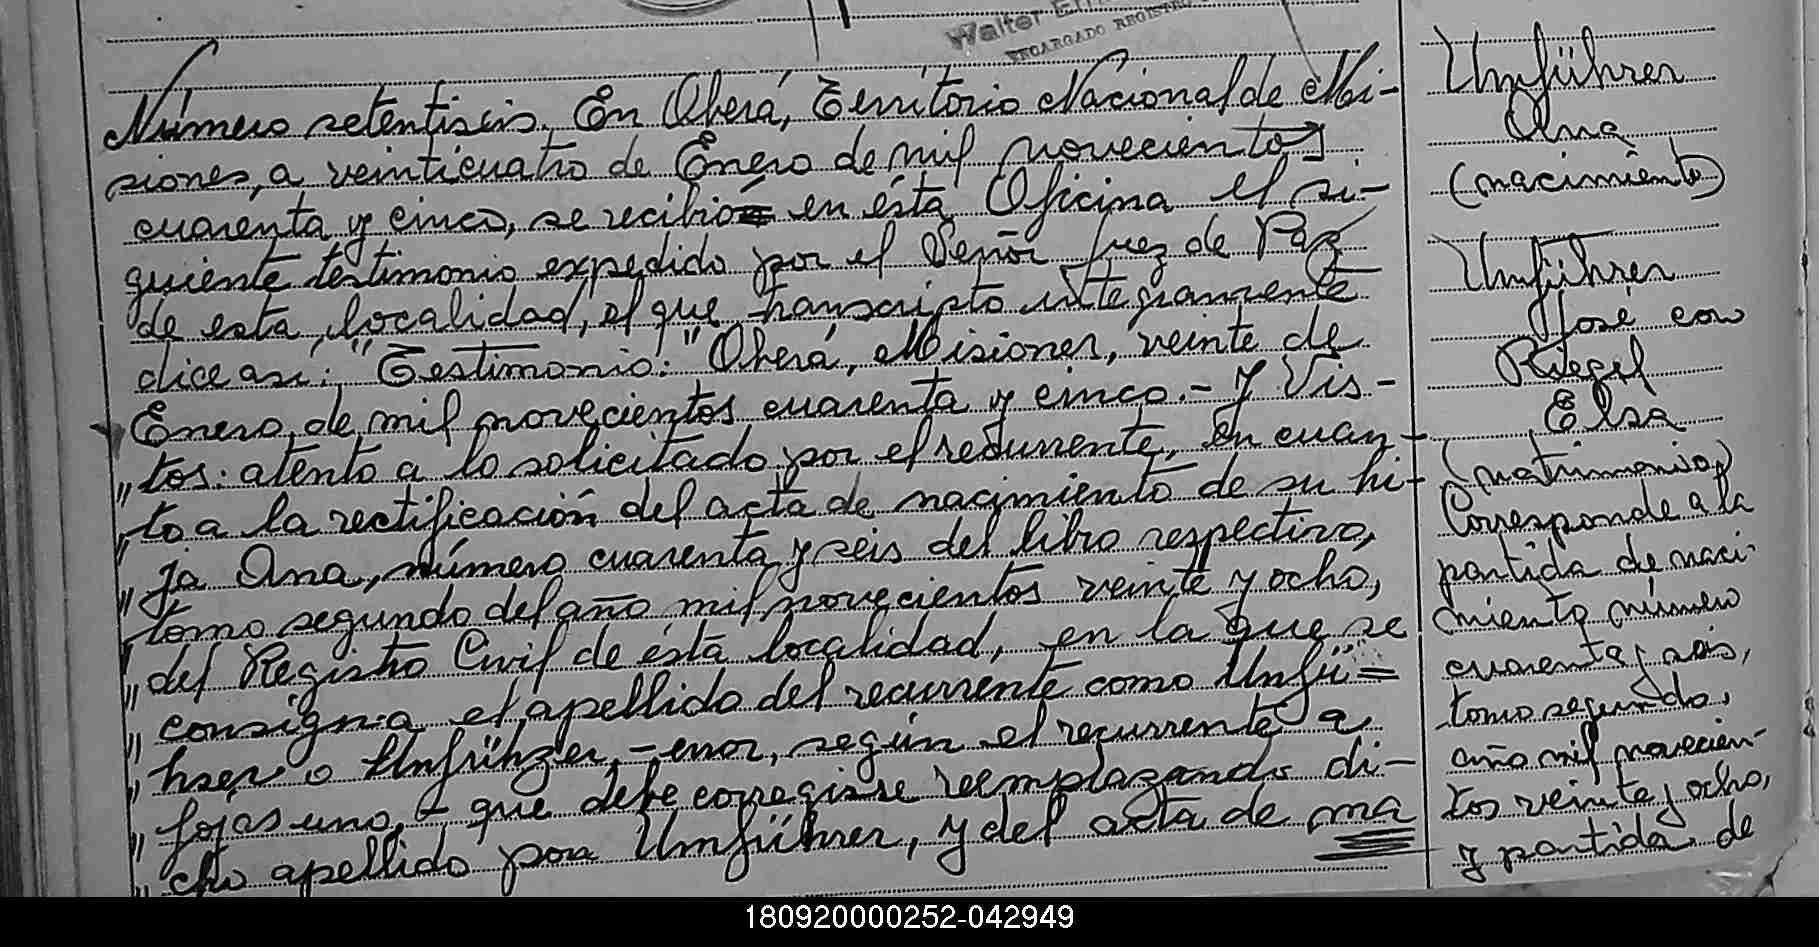 Walter
ENCARGADO REGISTRO
Número setentiseis. En Oberá, Territorio Nacional de Mi-
siones, a veinticuatro de Enero de mil novecientos
cuarenta y cinco, se recibió en ésta Oficina el si-
guiente testimonio expedido por el Señor Juez de Paz
de esta localidad, el que transcripto integramente
dice asi: "Testimonio: "Oberá, Misiones, veinte de
Enero de mil novecientos cuarenta y cinco.- Y Vis-
"tos: atento a lo solicitado por el recurrente, en cuan-
"to a la rectificación del acta de nacimiento de su hi-
"ja Ana, número cuarenta y seis del libro respectivo,
"tomo segundo del año mil novecientos veinte y ocho,
"del Registro Civil de ésta localidad, en la que se
"consigna el apellido del recurrente como Unfü=
"hser o Unfrühzer, -error, según el recurrente a
"fojas uno,- que debe corregirse reemplazando di-
"cho apellido por Umführer, y del acta de ma
Umführer
Ana
(nacimiento)
Umführer
José con
Riegel
Elsa
(matrimonio)
Corresponde a la
partida de naci-
miento número
cuarenta y seis,
tomo segundo,
año mil novecien-
tos veinte y ocho,
y partida de
180920000252-042949